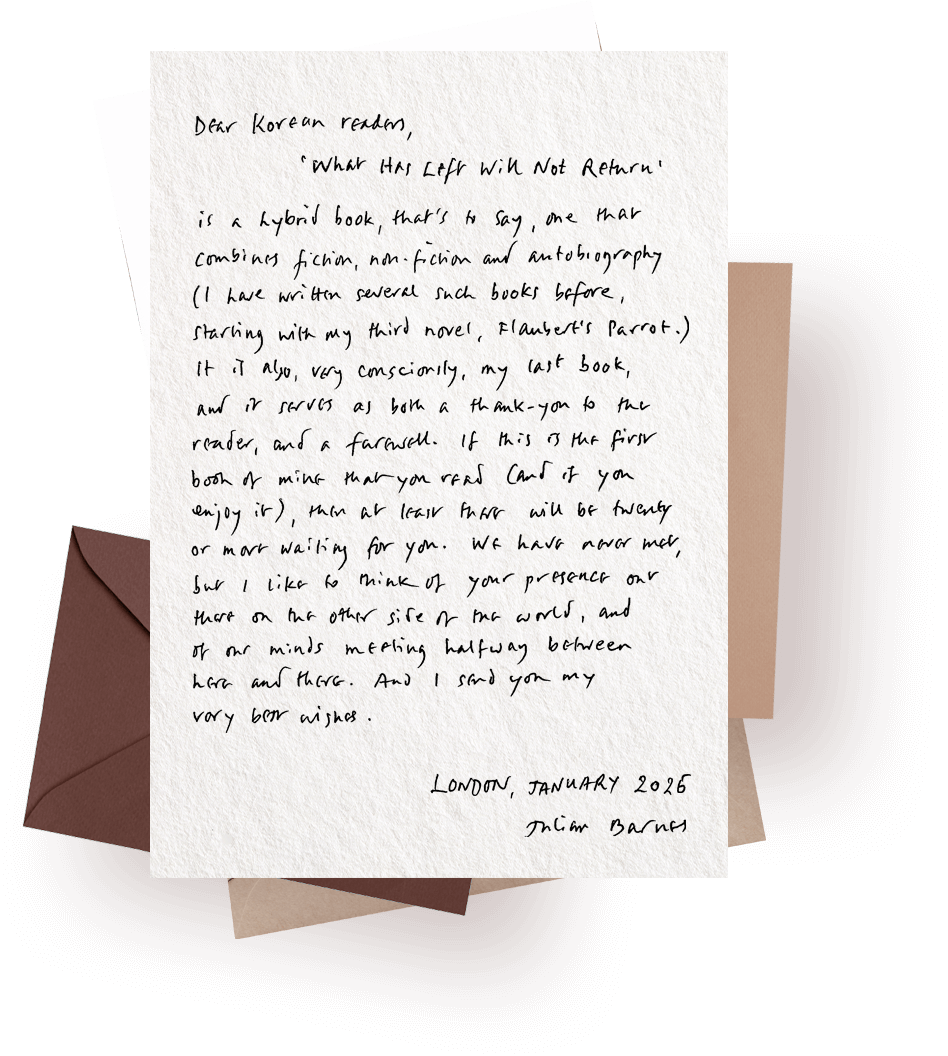 Dear Korean readers,
'What Has Left Will Not Return'
is a hybrid book, that's to say, one that
combines fiction, non-fiction and autobiography
(I have written several such books before,
starting with my third novel, Flaubert's Parrot.)
It is also, very consciously, my last book,
and it serves as both a thank-you to the
reader, and a farewell. If this is the first
book of mine that you read (and if you
enjoy it), then at least there will be twenty
or more waiting for you. We have never met,
but I like to think of your presence out
there on the other side of the world, and
of our minds meeting halfway between
here and there. And I send you my
very best wishes.
LONDON, JANUARY 2026
Julian Barnes